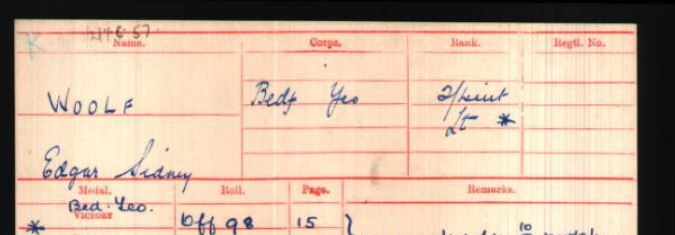 Name. Corps. Rank. Regtl. No.
WOOLF Beds Yeo 2/Lieut
Lt *
Edgar Sidney
Medal. Roll. Page. Remarks.
Bed. Yeo.
* VICTORY Off 98 15
10